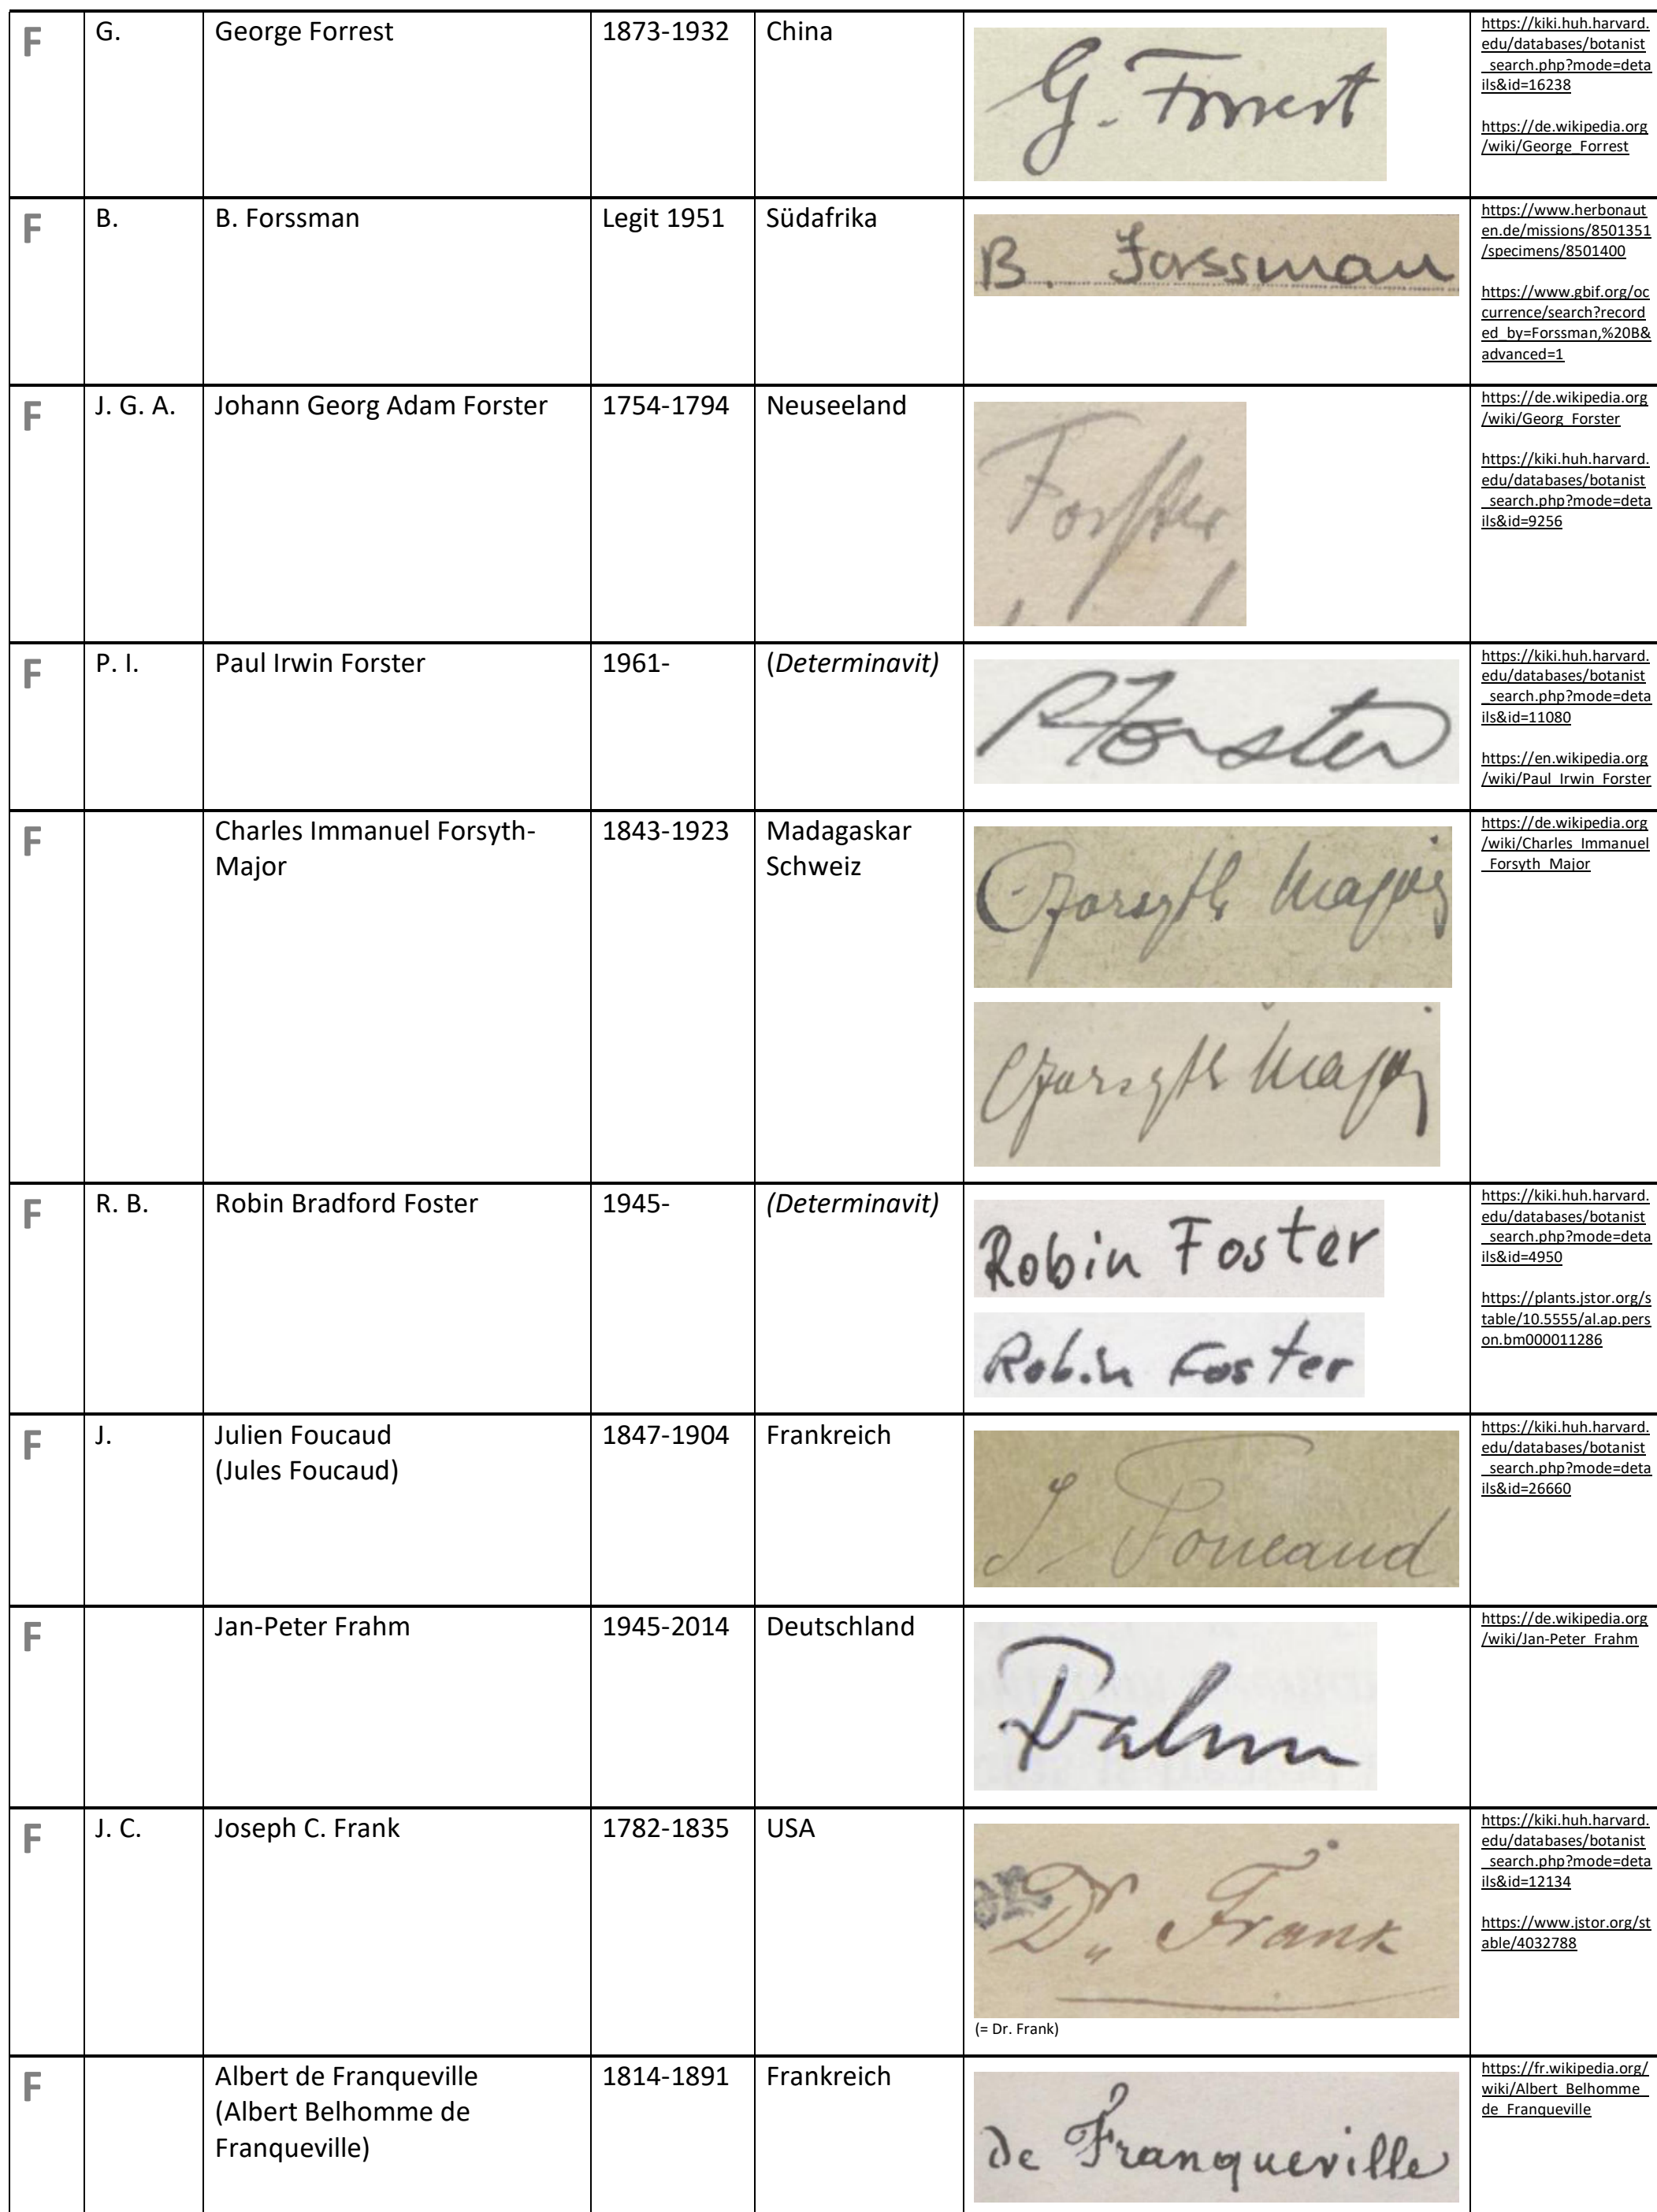 F
G.
George Forrest
1873-1932
China
G. Forrest
https://kiki.huh.harvard.
edu/databases/botanist
_search.php?mode=deta
ils&id=16238
https://de.wikipedia.org
/wiki/George_Forrest
F
B.
B. Forssman
Legit 1951
Südafrika
B. Forssman
https://www.herbonaut
en.de/missions/8501351
/specimens/8501400
https://www.gbif.org/oc
currence/search?record
ed_by=Forssman,%20B&
advanced=1
F
J. G. A.
Johann Georg Adam Forster
1754-1794
Neuseeland
Forster
https://de.wikipedia.org
/wiki/Georg_Forster
https://kiki.huh.harvard.
edu/databases/botanist
_search.php?mode=deta
ils&id=9256
F
P. I.
Paul Irwin Forster
1961-
(Determinavit)
PForster
https://kiki.huh.harvard.
edu/databases/botanist
_search.php?mode=deta
ils&id=11080
https://en.wikipedia.org
/wiki/Paul_Irwin_Forster
F
Charles Immanuel Forsyth-
Major
1843-1923
Madagaskar
Schweiz
CForsyth Major
CForsyth Major
https://de.wikipedia.org
/wiki/Charles_Immanuel
_Forsyth_Major
F
R. B.
Robin Bradford Foster
1945-
(Determinavit)
Robin Foster
Robin Foster
https://kiki.huh.harvard.
edu/databases/botanist
_search.php?mode=deta
ils&id=4950
https://plants.jstor.org/s
table/10.5555/al.ap.pers
on.bm000011286
F
J.
Julien Foucaud
(Jules Foucaud)
1847-1904
Frankreich
J. Foucaud
https://kiki.huh.harvard.
edu/databases/botanist
_search.php?mode=deta
ils&id=26660
F
Jan-Peter Frahm
1945-2014
Deutschland
Frahm
https://de.wikipedia.org
/wiki/Jan-Peter_Frahm
F
J. C.
Joseph C. Frank
1782-1835
USA
Dr. Frank
(= Dr. Frank)
https://kiki.huh.harvard.
edu/databases/botanist
_search.php?mode=deta
ils&id=12134
https://www.jstor.org/st
able/4032788
F
Albert de Franqueville
(Albert Belhomme de
Franqueville)
1814-1891
Frankreich
de Franqueville
https://fr.wikipedia.org/
wiki/Albert_Belhomme_
de_Franqueville